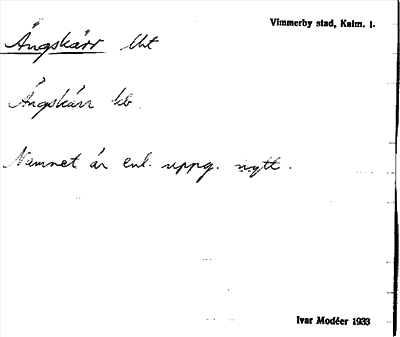 Vimmerby stad, Kalm. l.
Ängskärr Lht
Ängskärr
Namnet är enl. uppg. nytt.
Ivar Modéer 1933